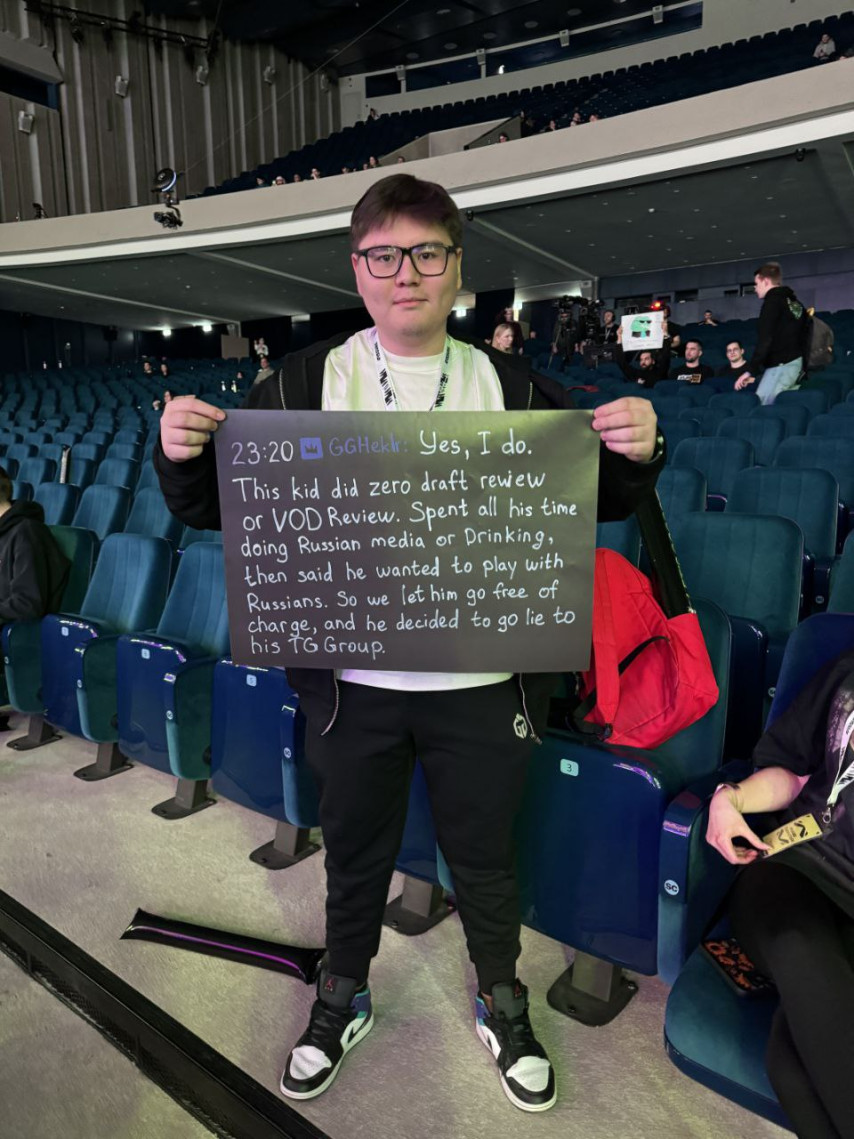 23:20 GGHeklr: Yes, I do.
This kid did zero draft review
or VOD Review. Spent all his time
doing Russian media or Drinking,
then said he wanted to play with
Russians. So we let him go free of
charge, and he decided to go lie to
his TG Group.
3
3
SC